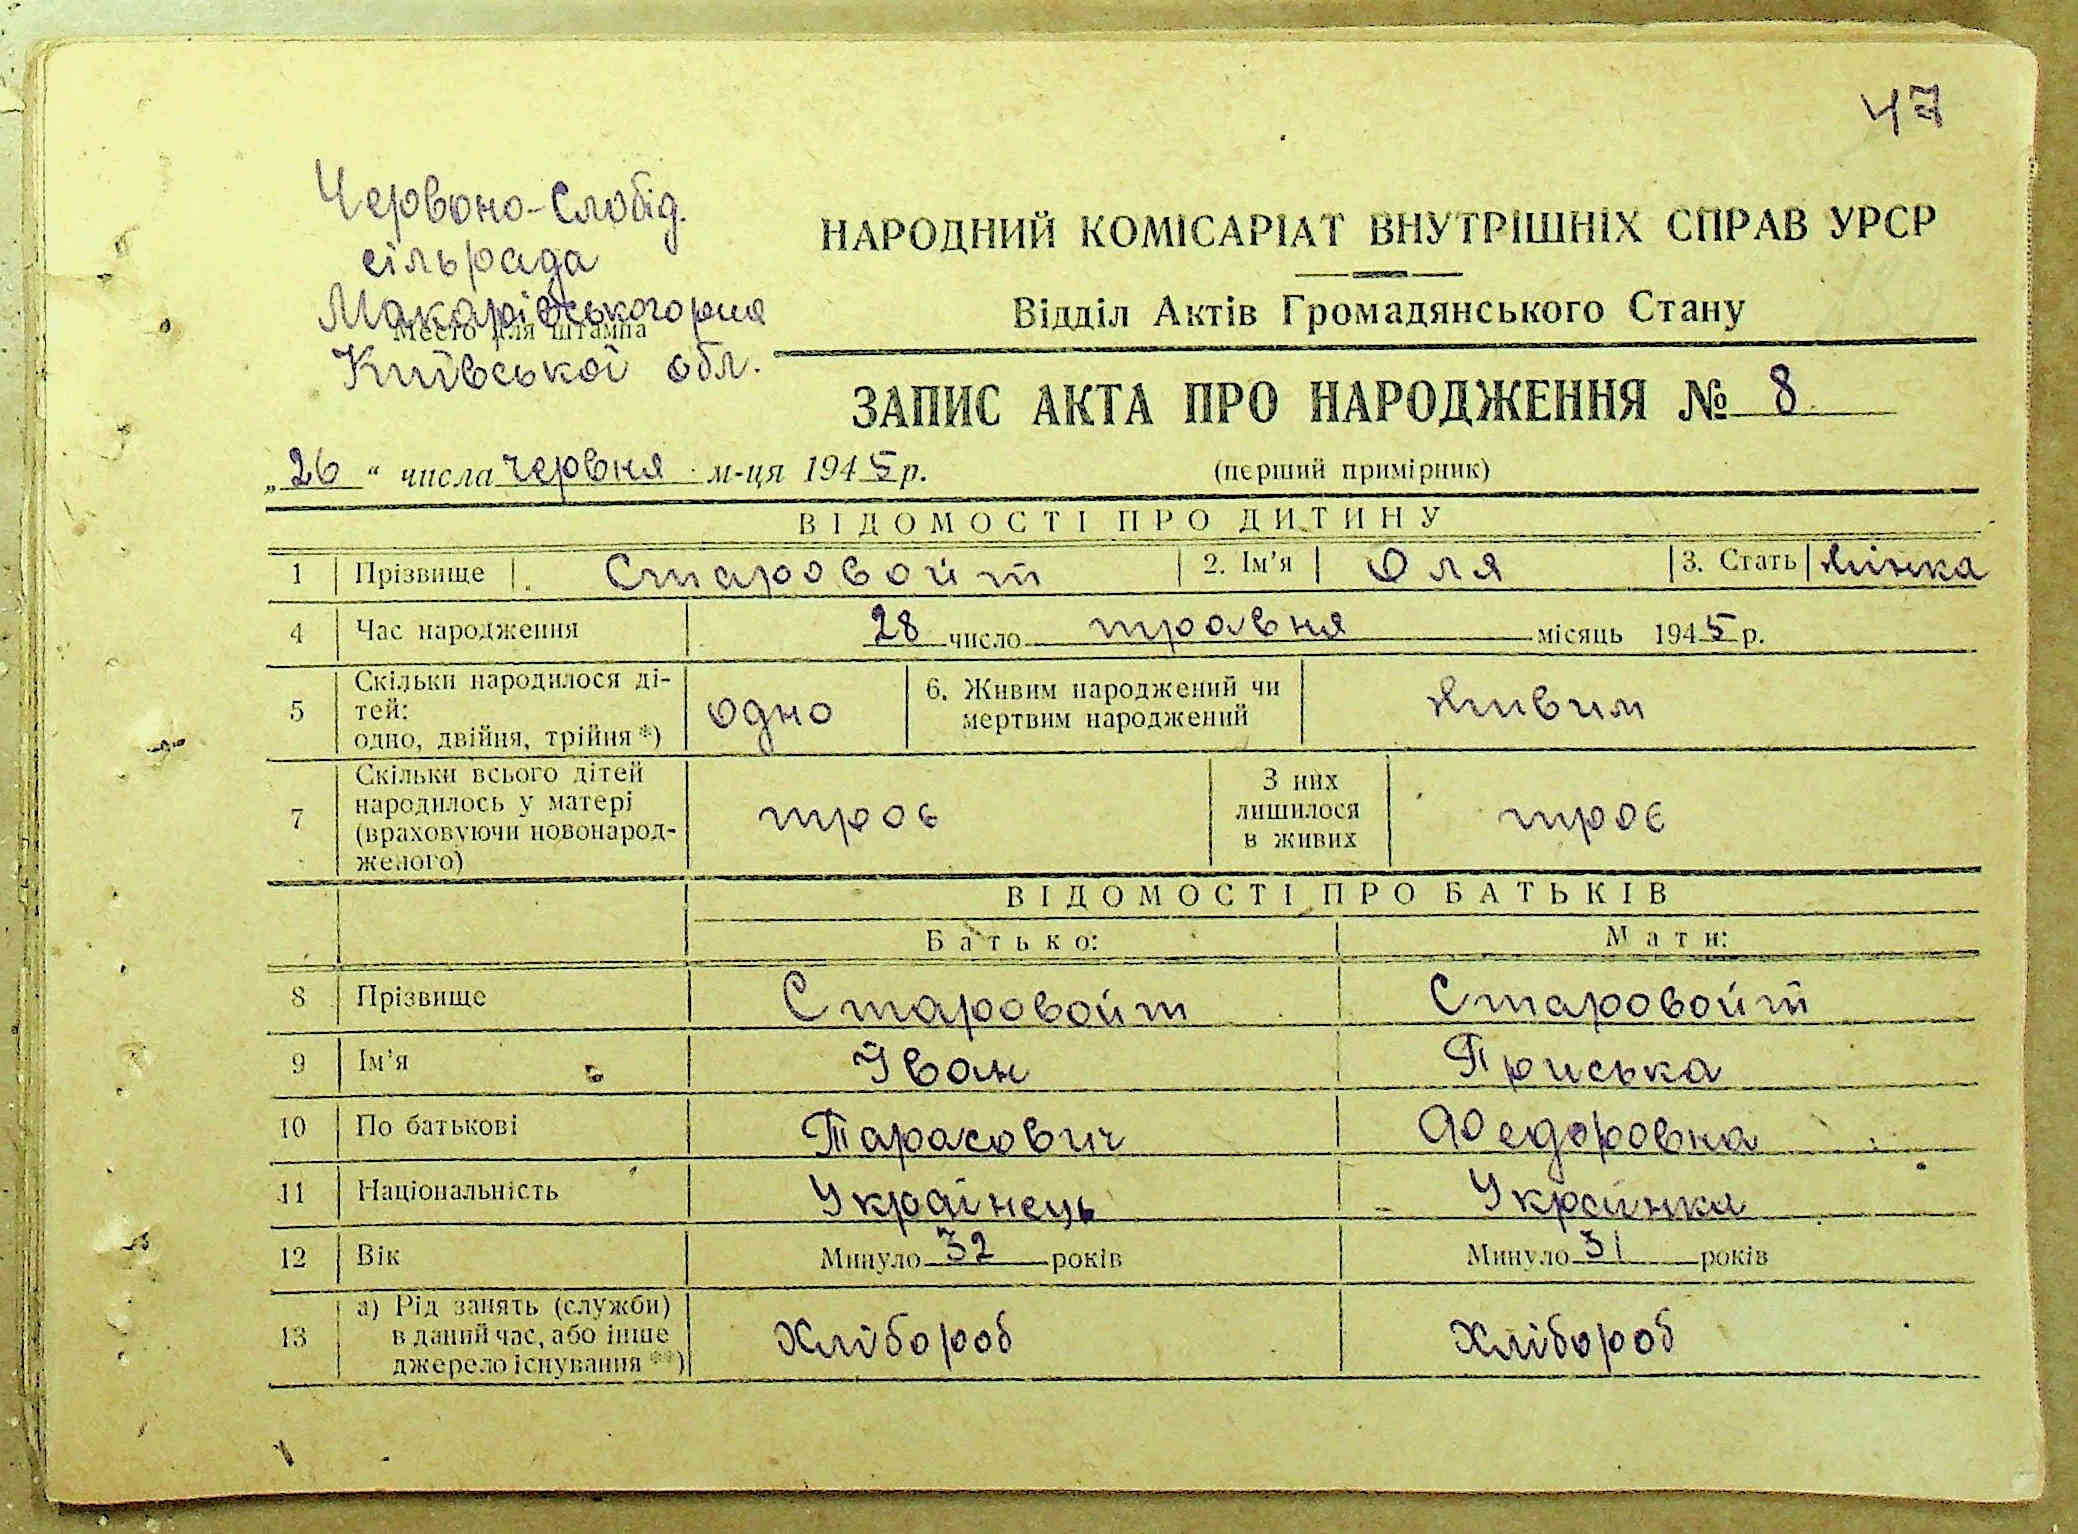 47
Червоно-Слобід.
сільрада
Макарівського р-на
Место для штампа
Київської обл.
НАРОДНИЙ КОМІСАРІАТ ВНУТРІШНІХ СПРАВ УРСР
Відділ Актів Громадянського Стану
ЗАПИС АКТА ПРО НАРОДЖЕННЯ № 8
„26“ числа червня м-ця 1945 р. (перший примірник)
ВІДОМОСТІ ПРО ДИТИНУ
1 Прізвище Старовойт 2. Ім’я Оля 3. Стать жінка
4 Час народження 28 число травня місяць 1945 р.
5 Скільки народилося ді-
тей:
одно, двійня, трійня *) одно 6. Живим народжений чи
мертвим народжений живим
7 Скільки всього дітей
народилось у матері
(враховуючи новонарод-
женого) троє З них
лишилося
в живих троє
ВІДОМОСТІ ПРО БАТЬКІВ
Батько: Мати:
8 Прізвище Старовойт Старовойт
9 Ім’я Іван Приська
10 По батькові Тарасович Федоровна
11 Національність Українець Українка
12 Вік Минуло 32 років Минуло 31 років
13 а) Рід занять (служби)
в даний час, або інше
джерело існування **) Хлібороб Хлібороб